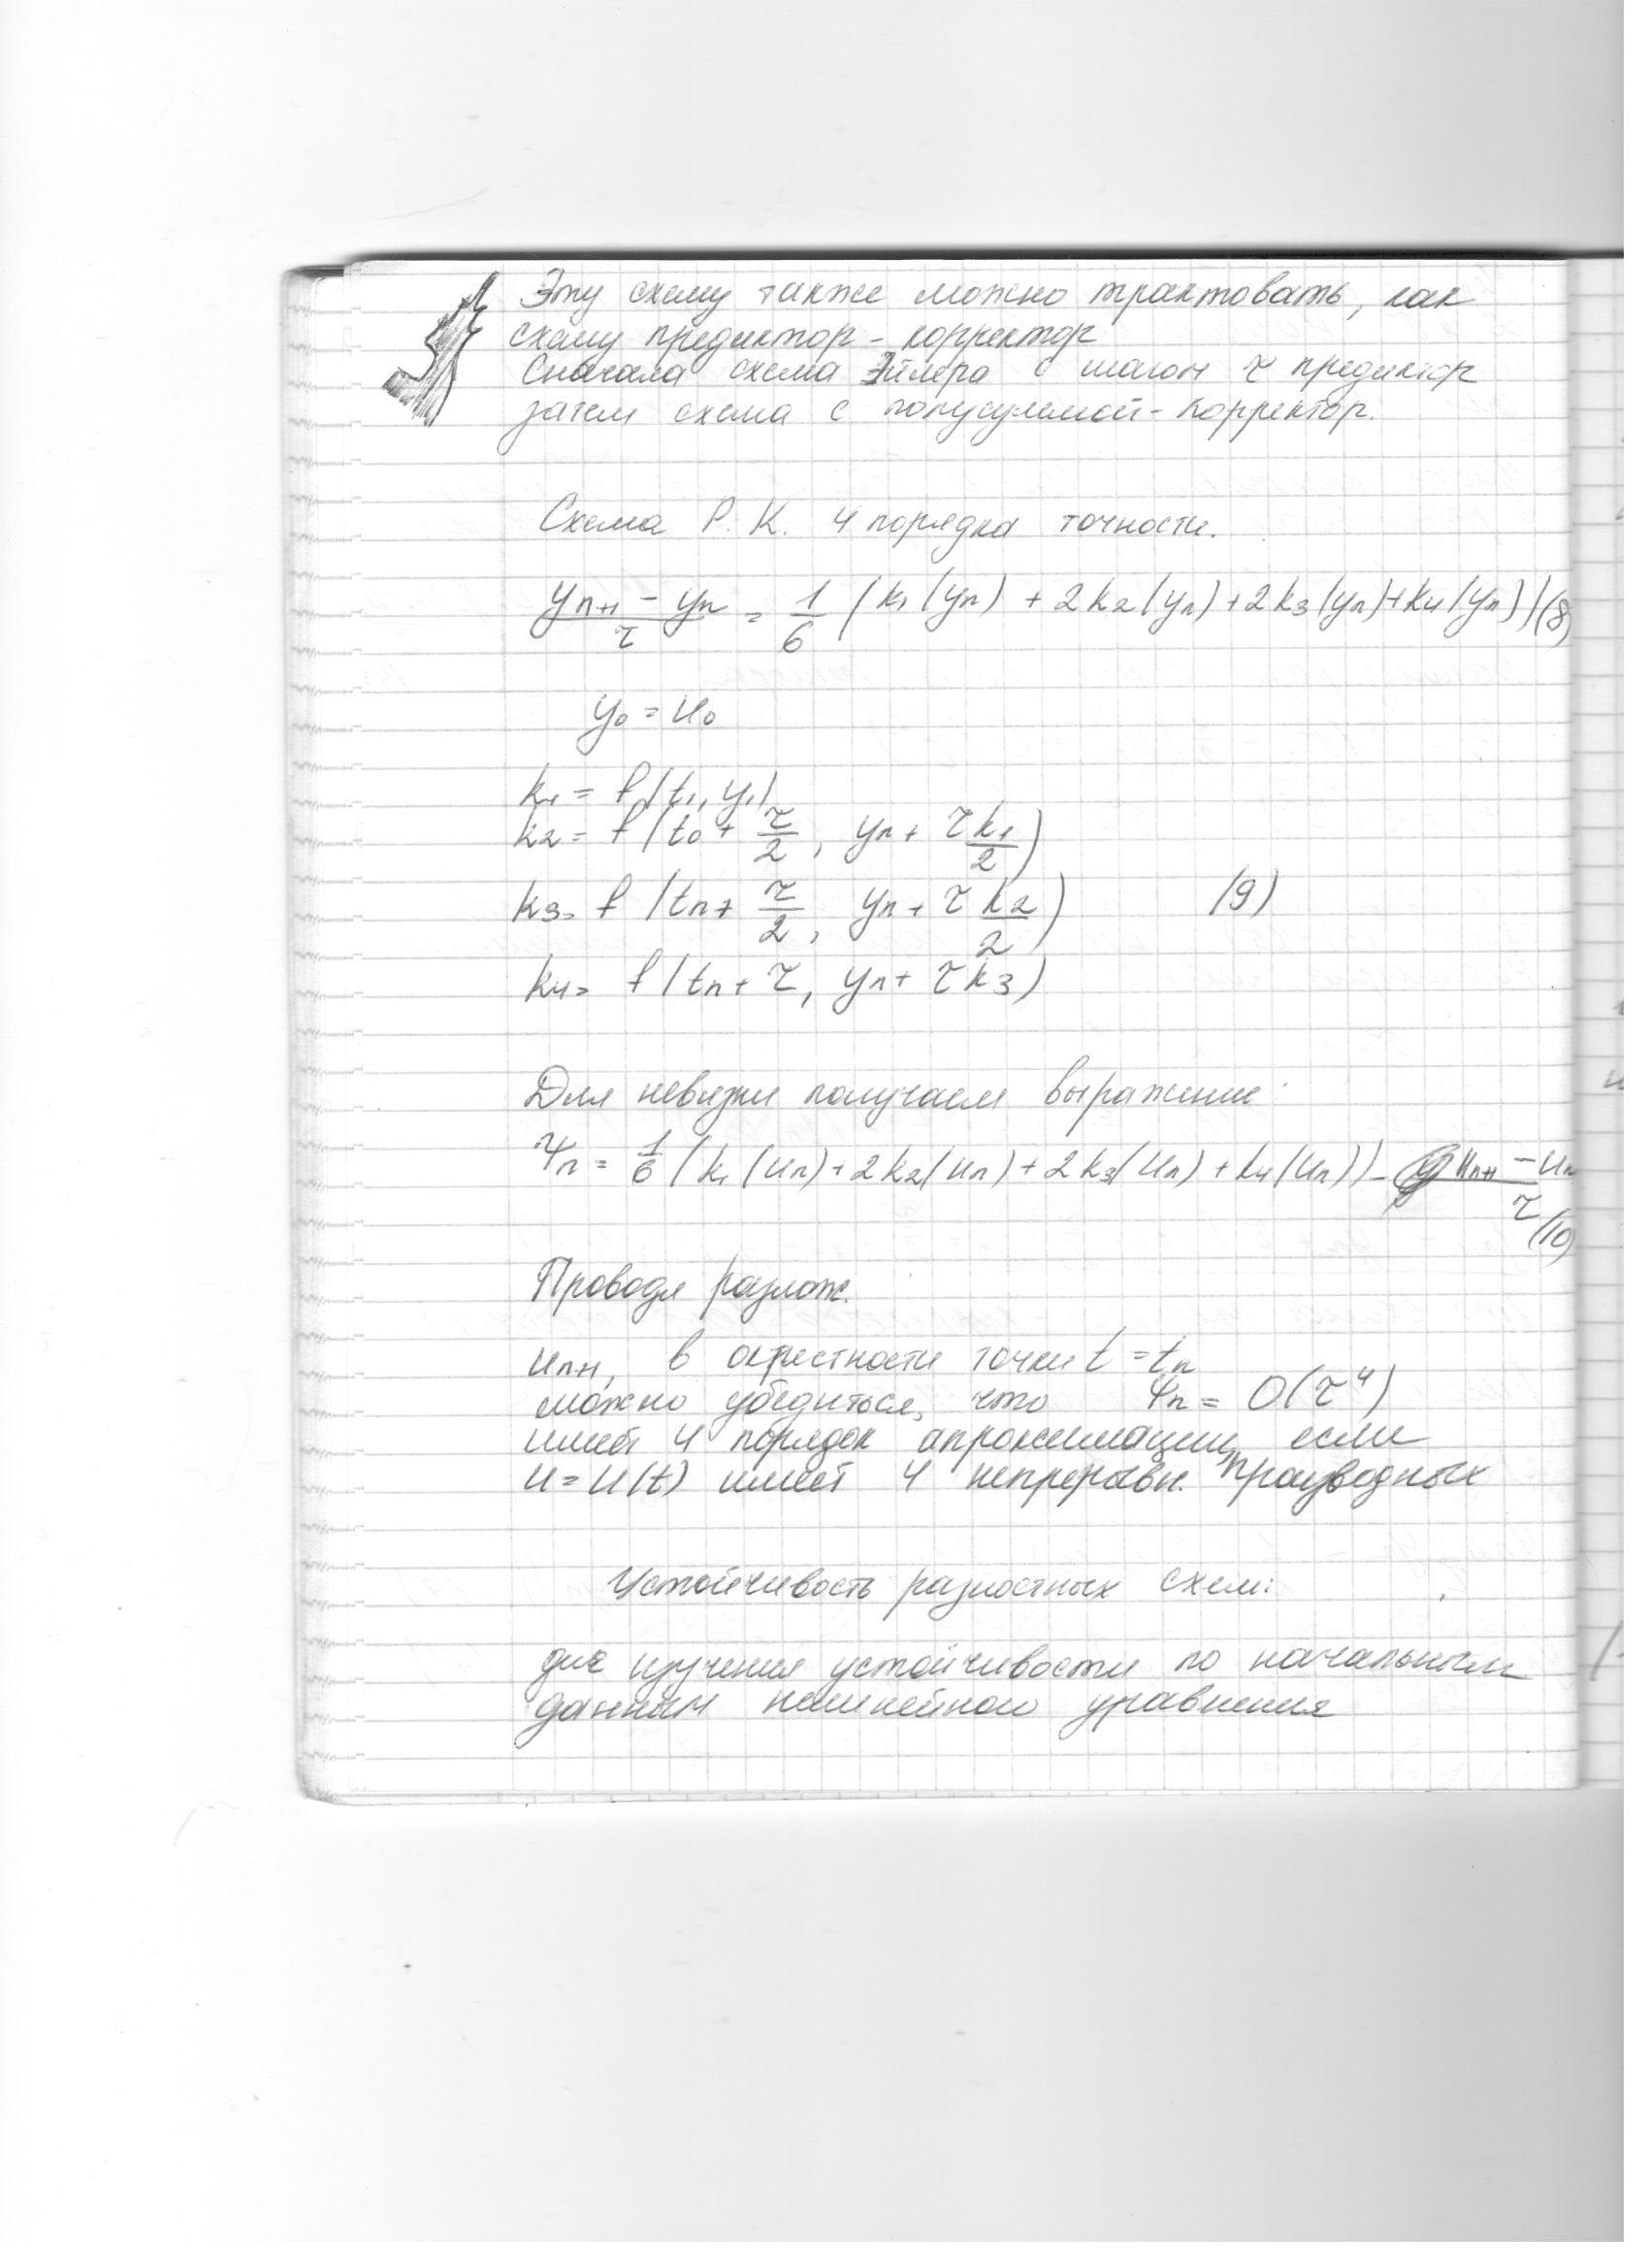 Эту схему также можно трактовать, как
схему предиктор - корректор
Сначала схема Эйлера с шагом τ предиктор
затем схема с полусуммой - корректор.
Схема Р. К. 4 порядка точности.
(yₙ₊₁ - yₙ)/τ = 1/6 (k₁(yₙ) + 2k₂(yₙ) + 2k₃(yₙ) + k₄(yₙ)) (8)
y₀ = u₀
k₁ = f(t₁, y₁)
k₂ = f(t₀ + τ/2, yₙ + τ k₁/2)
k₃ = f(tₙ + τ/2, yₙ + τ k₂/2) (9)
k₄ = f(tₙ + τ, yₙ + τk₃)
Для невязки получаем выражение
Ψₙ = 1/6 (k₁(uₙ) + 2k₂(uₙ) + 2k₃(uₙ) + k₄(uₙ)) - (uₙ₊₁ - uₙ)/τ
(10)
Проводя разлож.
uₙ₊₁, в окрестности точки t = tₙ
можно убедиться, что Ψₙ = O(τ⁴)
имеет 4 порядок апроксимации, если
u = u(t) имеет 4 непрерывн. производных
Устойчивость разностных схем:
для изучения устойчивости по начальным
данным нелинейного уравнения